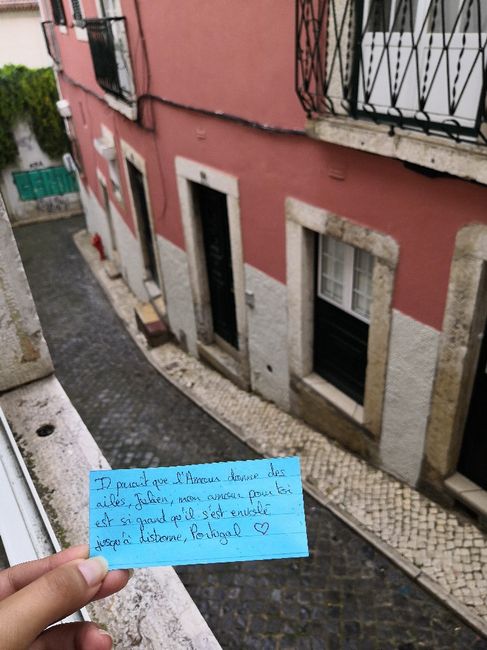 Il paraît que l'Amour donne des
ailes, Julien, mon amour pour toi
est si grand qu'il s'est envolé
jusqu'à Lisbonne, Portugal ♡